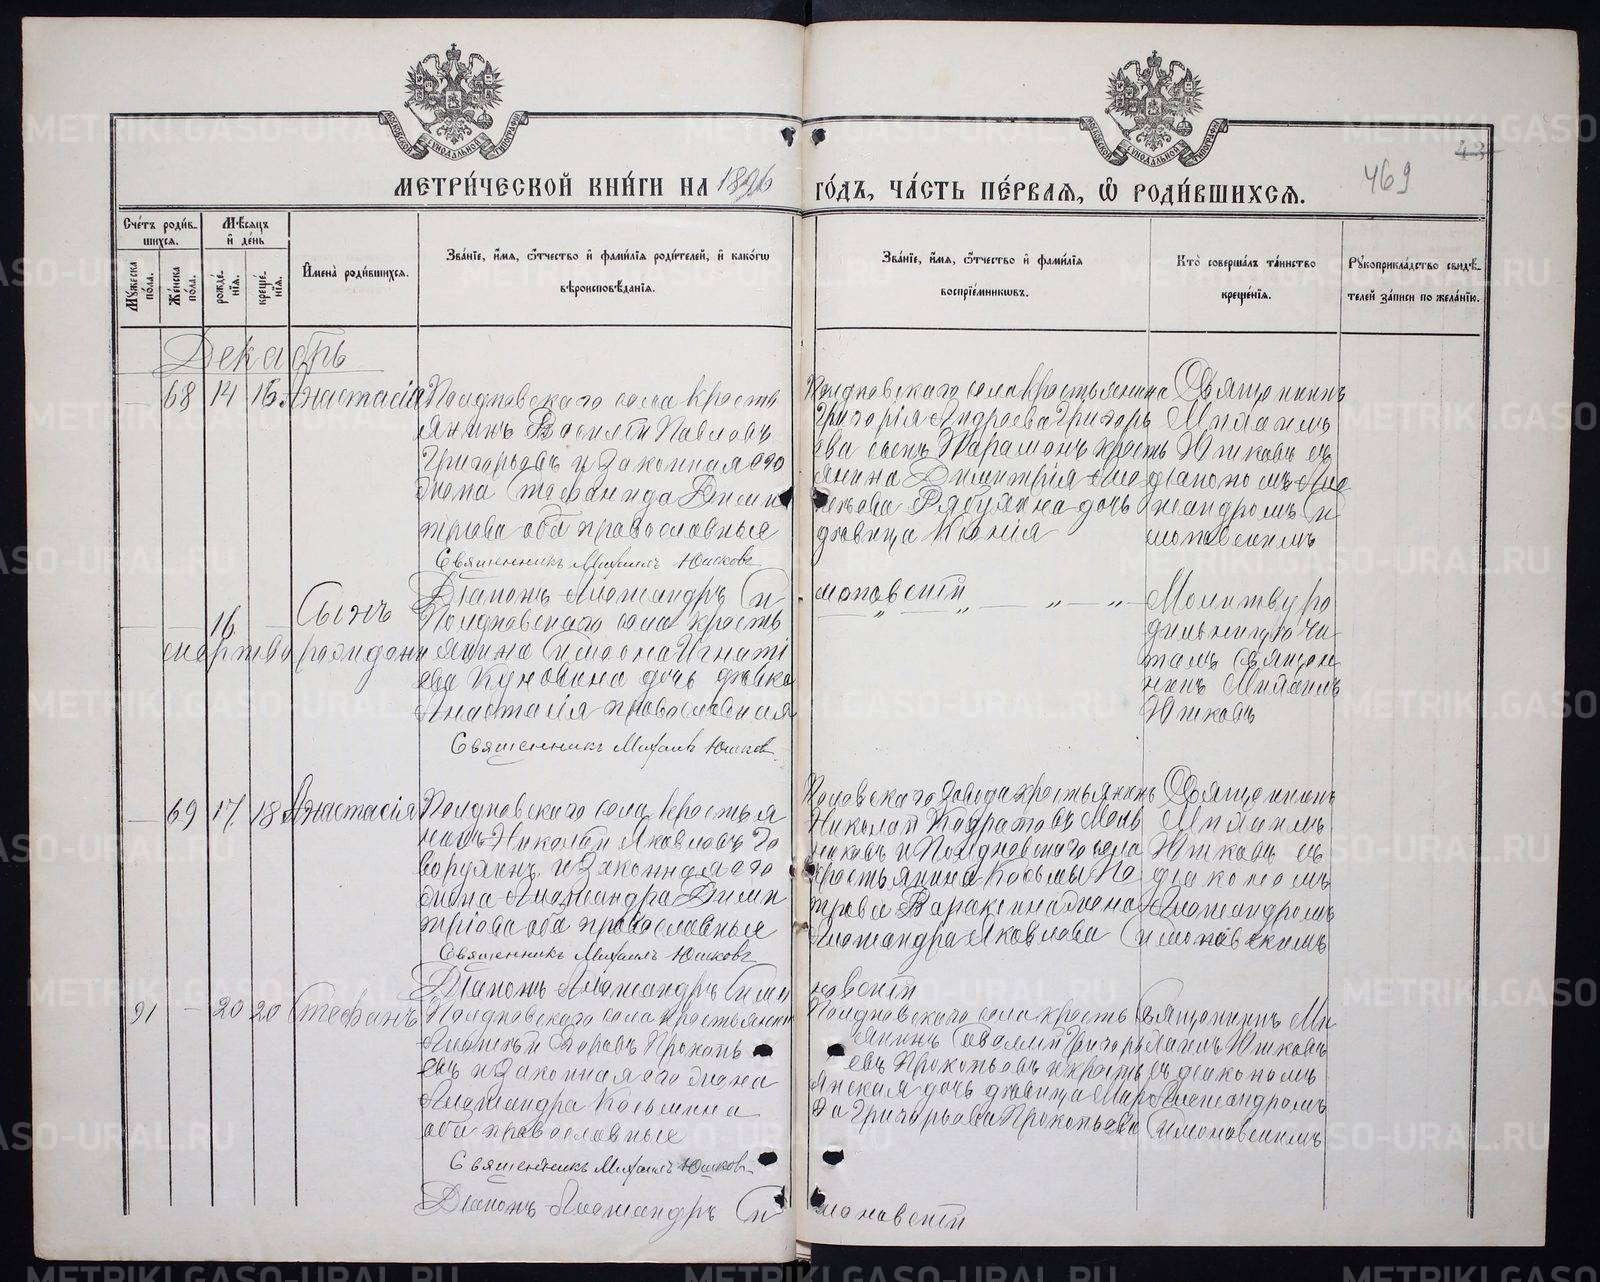 МЕТРИ́ЧЕСКОЙ КНИ́ГИ НА 1896 ГО́ДЪ, ЧА́СТЬ ПЕ́РВАЯ, Ѽ РОДИ́ВШИХСЯ.
469
43
Сче́тъ роди́вшихся.
Му́жеска по́ла.
Же́нска по́ла.
Мѣ́сяцъ и де́нь
рожде́нія.
креще́нія.
Имена̀ роди́вшихся.
Зва́ніе, и́мя, о́тчество и фами́лія роди́телей, и како́гѡ
вѣроисповѣ́данія.
Зва́ніе, и́мя, о́тчество и фами́лія
воспріе́мниковъ.
Кто̀ соверша́лъ та́инство
креще́нія.
Рукоприкла́дство свидѣ́-
телей за́писи по жела́нію.
Декабрь
68 14 15 Анастасія
Полдневскаго села кресть
янинъ Василій Павловъ
Григорьевъ и законная его
жена Стефанида Дими
тріева оба православные
Священникъ Михаилъ Юшковъ
Діаконъ Александръ Си
Полдневскаго села крестьянина
Григорія Андреева Григорь
ева сынъ Парамонъ кресть
янина Димитрія Але
ева Рябухина дочь
дѣвица Ксенія
моновскій
Священникъ
Михаилъ
Юшковъ съ
діакономъ Але
ксандромъ Си
моновскимъ
16
Сынъ
мертворожденн
Полдневскаго села кресть
янина Симеона Игнаті
ева Кунгина дочь дѣвка
Анастасія православная
Священникъ Михаилъ Юшковъ
Молитву ро
дильницѣ чи
талъ Священ
никъ Михаилъ
Юшковъ
69 17 18 Анастасія
Полдневскаго села крестья
нинъ Николай Яковлевъ
и законная его
жена Александра Дими
тріева оба православные
Священникъ Михаилъ Юшковъ
Діаконъ Александръ Симо
завода крестьянинъ
Николай Кодратовъ
и Полдневскаго села
крестьянина Косьмы Пе
трова Варакина жена
Александра Яковлева
новскій
Священникъ
Михаилъ
Юшковъ съ
діакономъ
Александромъ
Симоновскимъ
91 — 20 20 Стефанъ
Полдневскаго села крестьянинъ
Алексѣй Егоровъ Прокопь
евъ и законная его жена
Александра Косьмина
оба православные
Священникъ Михаилъ Юшковъ
Діаконъ Александръ Си
Полдневскаго села кресть
янинъ Савелій Григорь
евъ Прокопьевъ и кресть
янская дочь дѣвица Мар
Григорьева Прокопьева
моновскій
Священникъ Ми
хаилъ Юшковъ
съ діакономъ
Александромъ
Симоновскимъ
METRIKI.GASO-URAL.RU